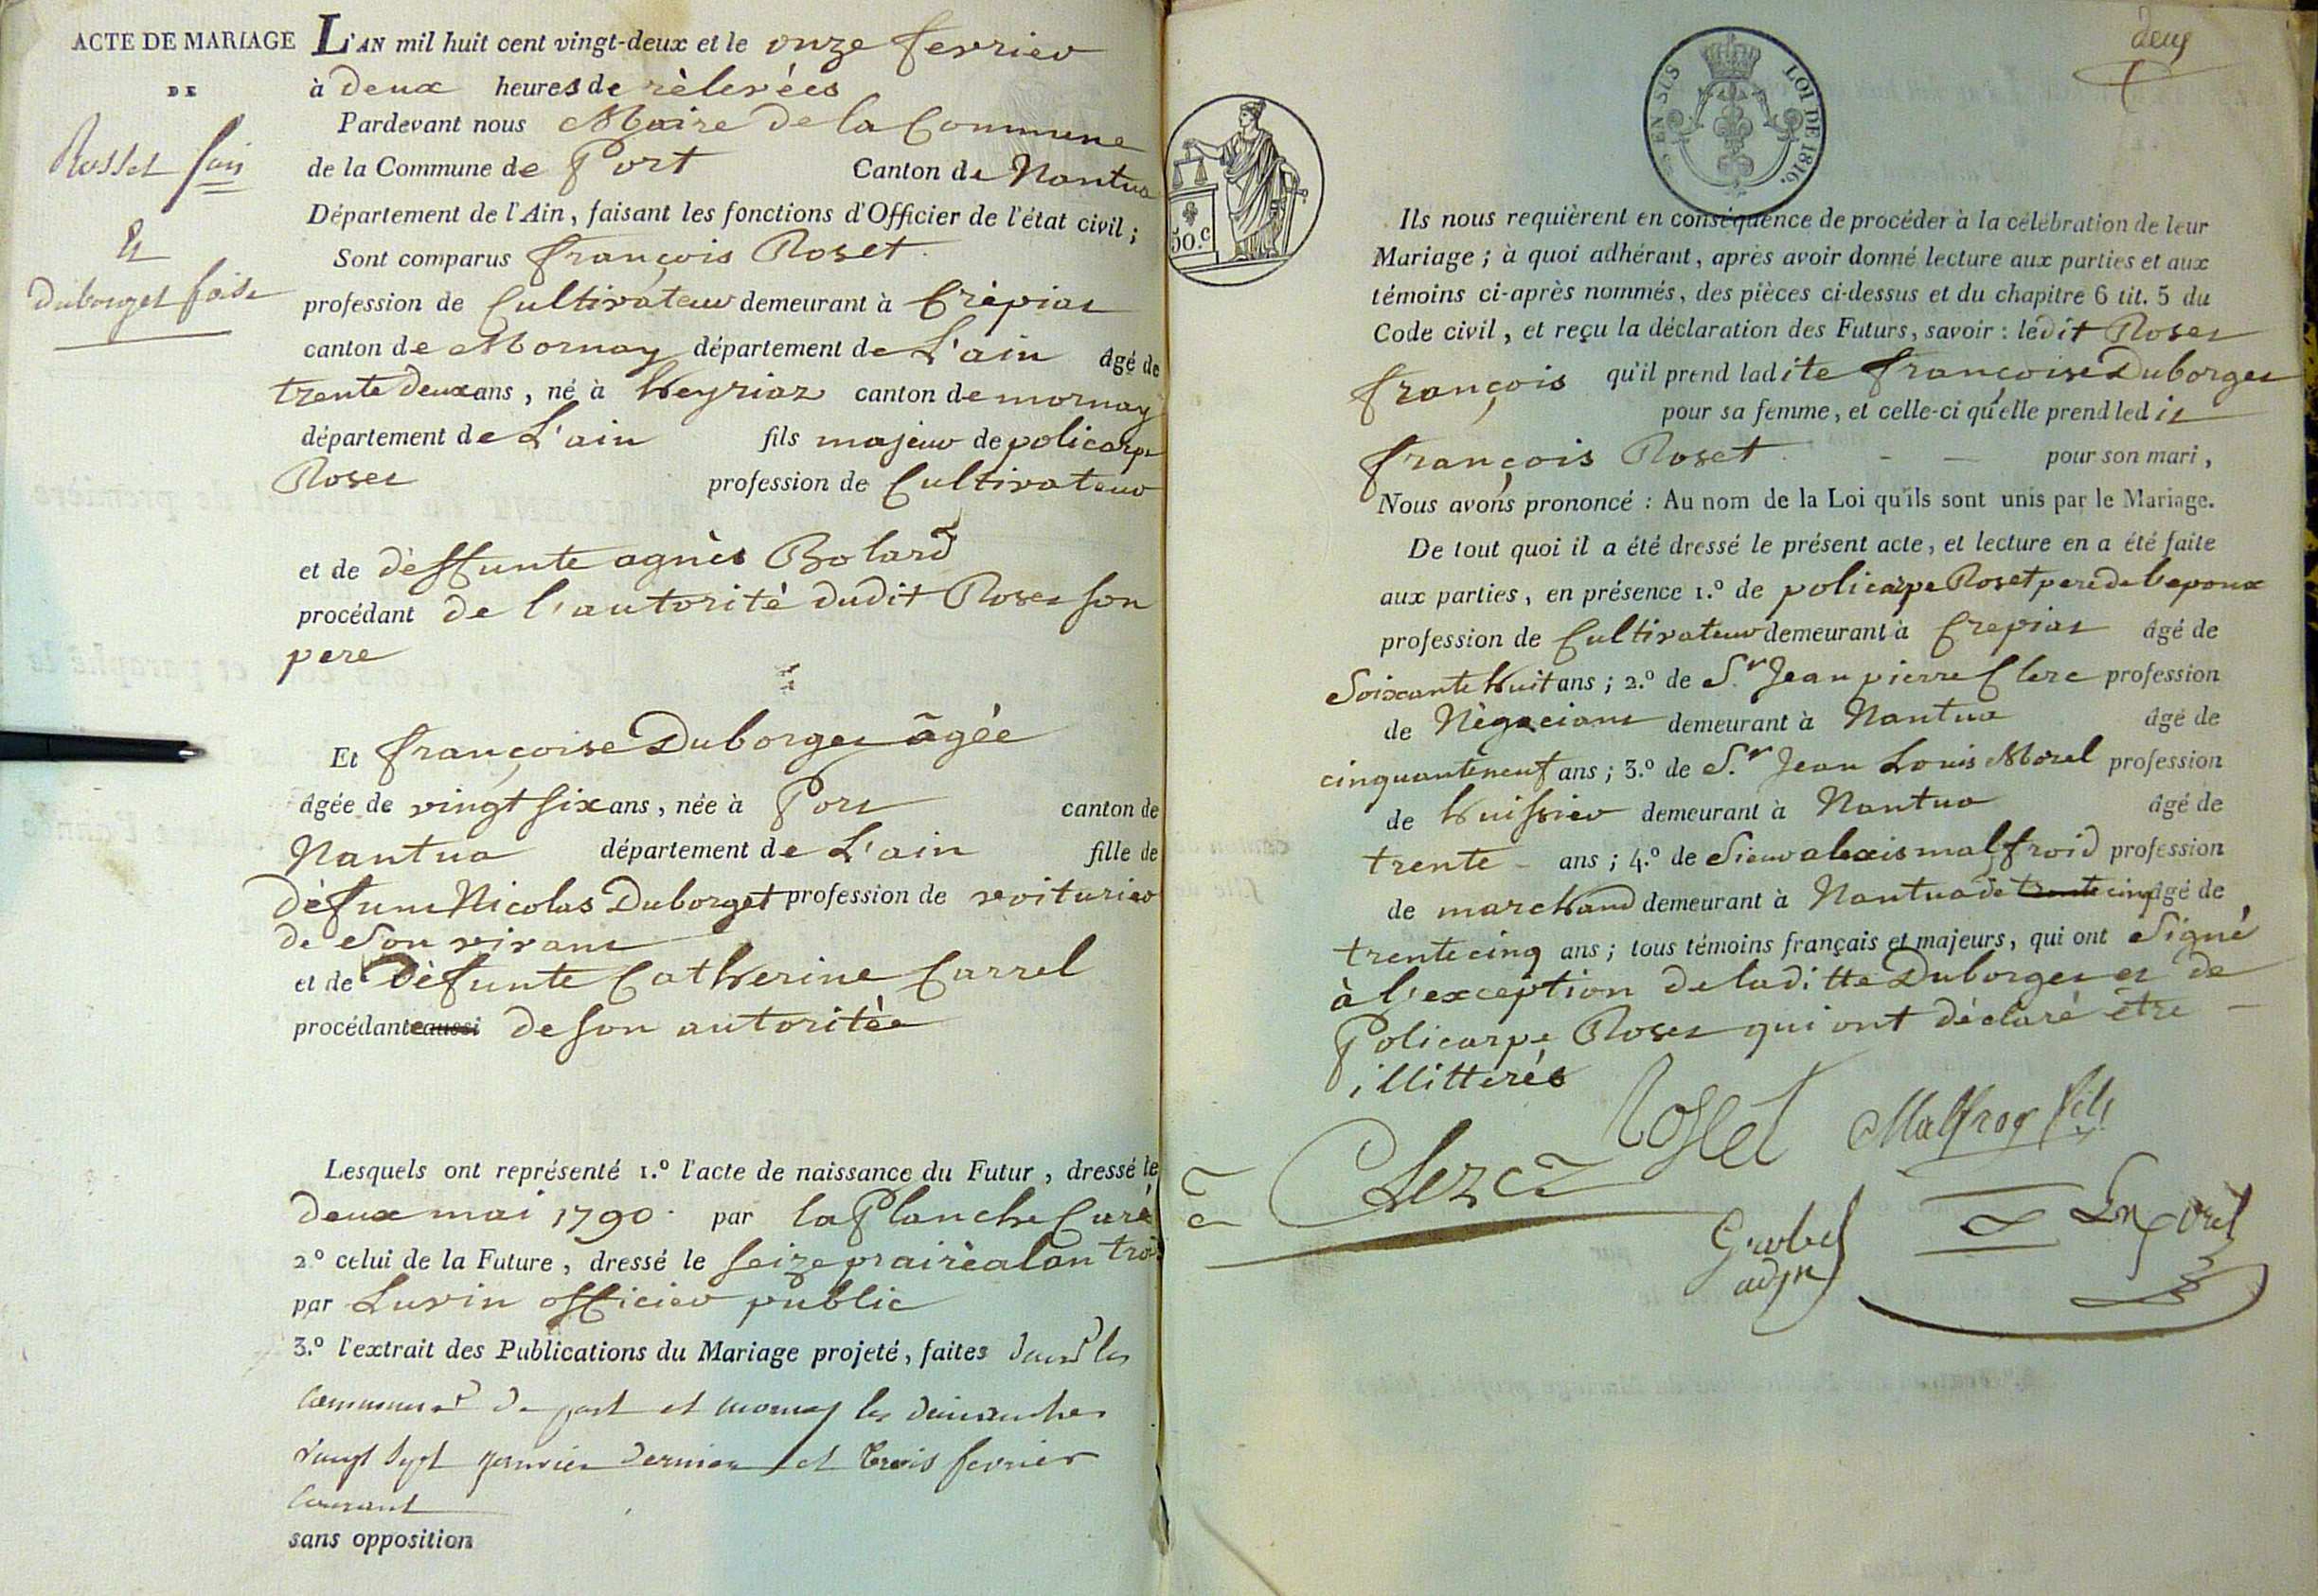 ACTE DE MARIAGE
DE
Rosset fois
Et
Dubouget foise
L'AN mil huit cent vingt-deux et le onze fevrier
à deux heures de rèlevées
Pardevant nous Maire De la Commune
de la Commune de Port Canton de Nantua
Département de l'Ain, faisant les fonctions d'Officier de l'état civil ;
Sont comparus françois Roset
profession de Cultivateur demeurant à Crépiat
canton de Mornay département de L'ain âgé de
trente Deux ans, né à heyriaz canton de mornay
département de L'ain fils majeur de policarpe
Roset profession de Cultivateur
et de dèffunte agnès Bolard
procédant de l'autorité dudit Roset son
pere
Et françoise Duborget âgée
âgée de vingt six ans, née à Port canton de
Nantua département de L'ain fille de
Défunt Nicolas Duborget profession de voiturier
de Son vivant
et de Défunte Catherine Carrel
procédante aussi de son autoritée
Lesquels ont représenté 1.º l'acte de naissance du Futur, dressé le
deux mai 1790. par la Planche Curé
2.º celui de la Future, dressé le seize prairéal an trois
par Luvin officier public
3.º l'extrait des Publications du Mariage projeté, faites dans les
communes de port et mornay les dimanches
vingt sept janvier dernier et trois fevrier
courant
sans opposition
deux
EN SUS LOI DE 1816.
50.c
Ils nous requièrent en conséquence de procéder à la célébration de leur
Mariage ; à quoi adhérant, après avoir donné lecture aux parties et aux
témoins ci-après nommés, des pièces ci-dessus et du chapitre 6 tit. 5 du
Code civil, et reçu la déclaration des Futurs, savoir : ledit Roset
françois qu'il prend ladite françoise Duborget
pour sa femme, et celle-ci qu'elle prend ledit
françois Roset - — pour son mari,
Nous avons prononcé : Au nom de la Loi qu'ils sont unis par le Mariage.
De tout quoi il a été dressé le présent acte, et lecture en a été faite
aux parties, en présence 1.º de policarpe Roset pere de l'epoux
profession de Cultivateur demeurant à Crepiat âgé de
Soixante huit ans ; 2.º de S.r Jean pierre Clerc profession
de Nègociant demeurant à Nantua âgé de
cinquante neuf ans ; 3.º de S.r Jean Louis Morel profession
de huissier demeurant à Nantua âgé de
trente - ans ; 4.º de Sieur alexis malfroid profession
de marchand demeurant à Nantua de trente cinq âgé de
trente cinq ans ; tous témoins français et majeurs, qui ont Signé
à l'exception de laditte Duborget et de
Policarpe Roset qui ont déclaré être —
illitterés
Rosset Malfroy fils
Clerc
Grobel
adjt